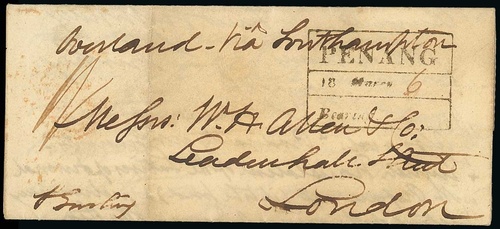 Overland Via Southampton
PENANG
18 March 6
Bearing
Messrs: Wm. H. Allen & Co:
Leadenhall Street
London